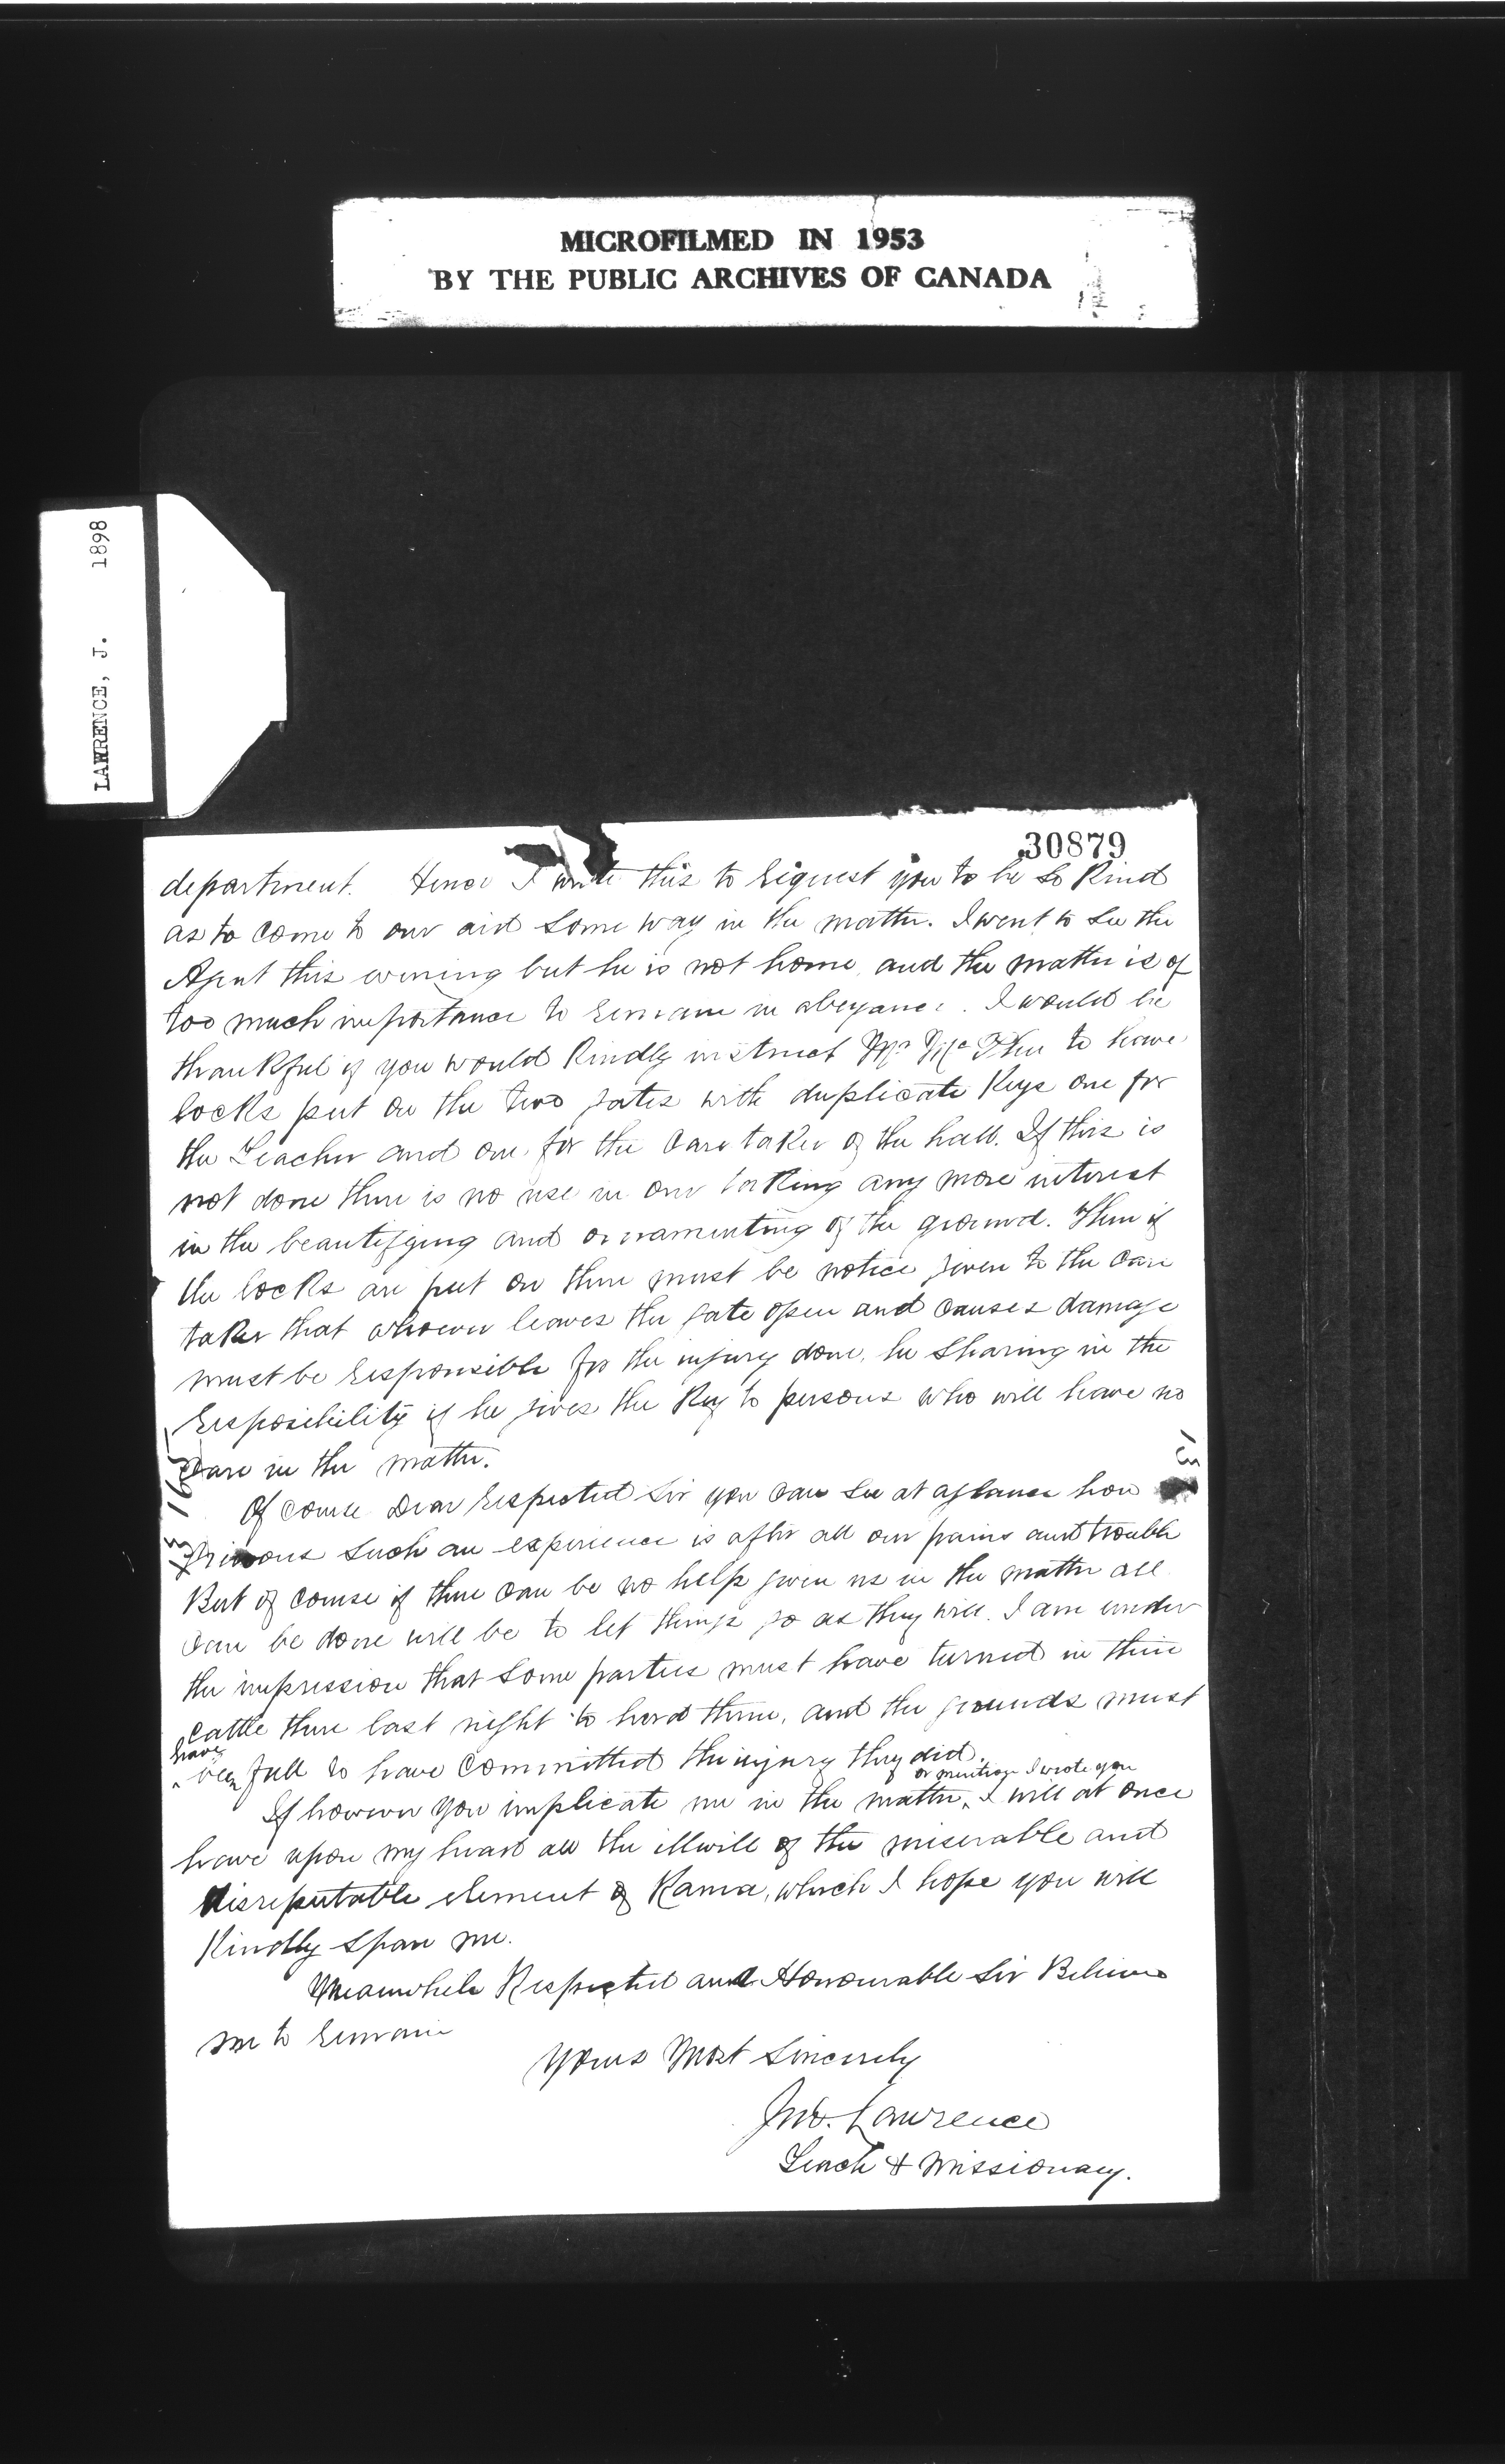 MICROFILMED IN 1953
BY THE PUBLIC ARCHIVES OF CANADA
LAWRENCE, J. 1898
30879
department. Hence I write this to request you to be so kind
as to come to our aid some way in the matter. I went to see the
Agent this evening but he is not home, and the matter is of
too much importance to remain in abeyance. I would be
thankful if you would kindly instruct Mr McPhee to have
locks put on the two gates with duplicate keys one for
the Teacher and one for the care taker of the hall. If this is
not done there is no use in our taking any more interest
in the beautifying and ornamenting of the ground. Then if
the locks are put on there must be notice given to the care
taker that whoever leaves the gate open and causes damage
must be responsible for the injury done, he sharing in the
resposibility if he gives the key to persons who will have no
care in the matter.
Of course Dear respected Sir you can see at a glance how
such an experience is after all our pains and trouble
But of course if there can be no help given us in the matter all
can be done will be to let things go as they will. I am under
the impression that some parties must have turned in their
cattle there last night to herd them, and the grounds must
have
been full to have committed the injury they did.
or mention I wrote you
If however you implicate me in the matter, I will at once
have upon my heart all the illwill of the miserable and
disreputable element of Rama, which I hope you will
kindly spare me.
Meanwhile Respected and Honourable Sir Believe
me to remain
Yours Most Sincerely
Jno. Lawrence
Teach & Missionary.